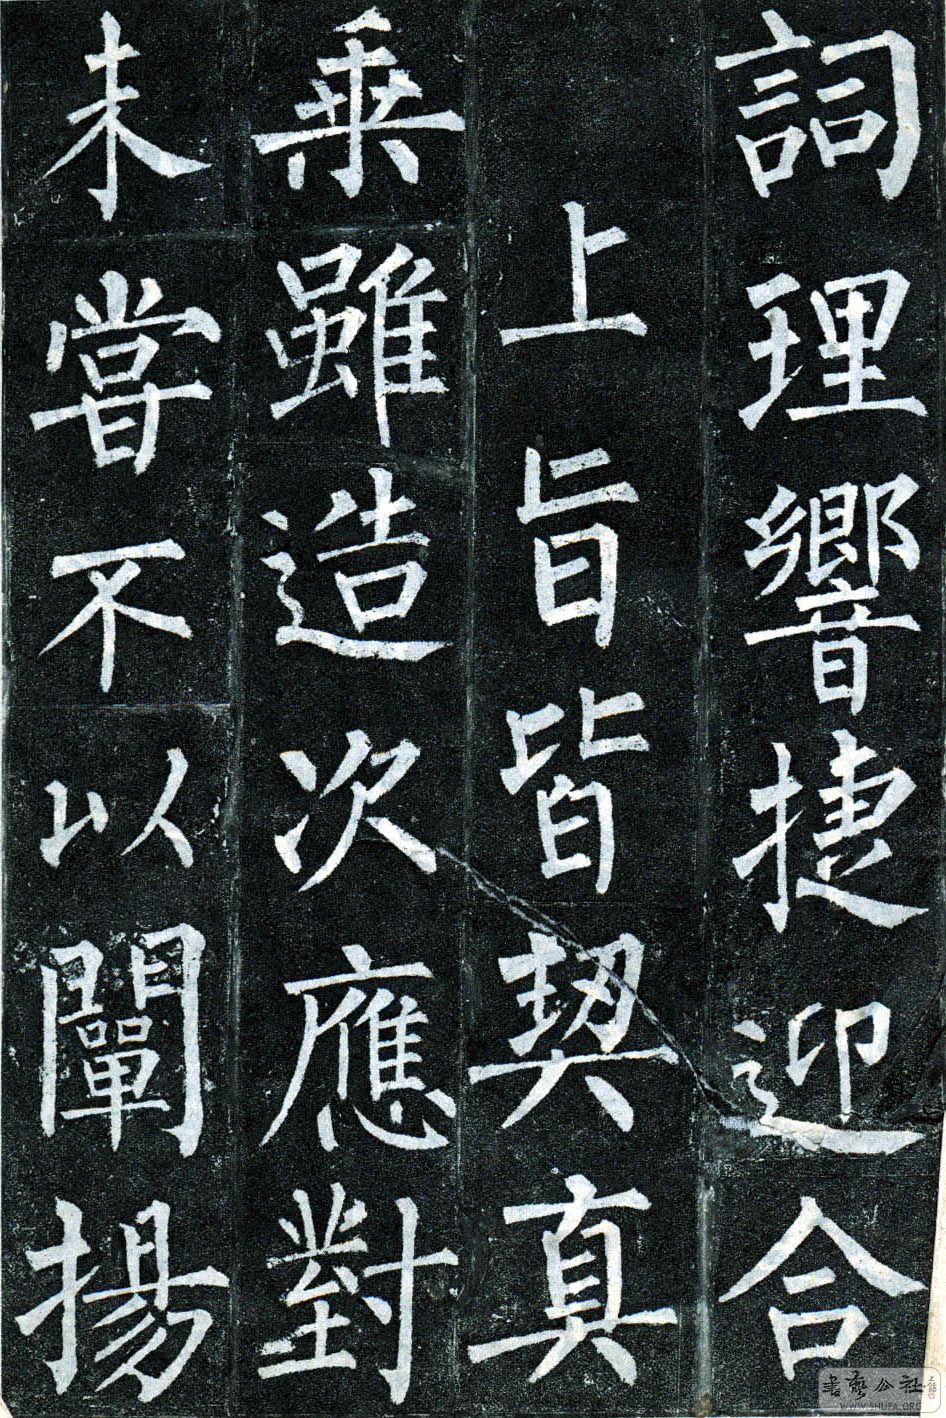 詞理響捷迎合
上旨皆契真
乗雖造次應對
未嘗不以闡揚
書藝公社
WWW.SHUFA.ORG